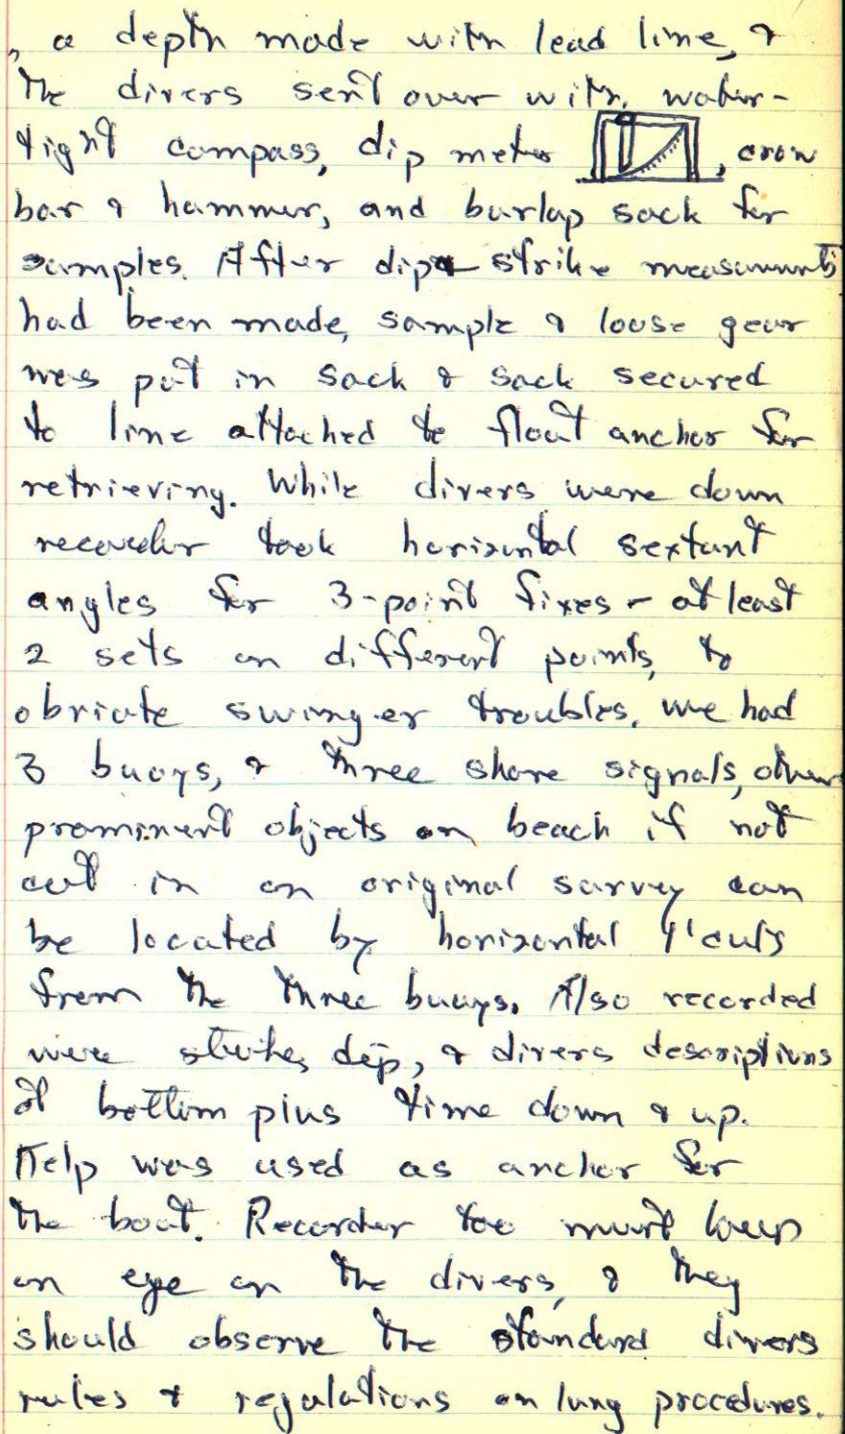 , a depth made with lead line, &
the divers sent over with water-
tight compass, dip meter , crow
bar & hammer, and burlap sack for
samples. After dip & strike measurements
had been made, sample & loose gear
was put in sack & sack secured
to line attached to float anchor for
retrieving. While divers were down
recorder took horizontal sextant
angles for 3-point fixes - at least
2 sets on different points, to
obviate swinger troubles. We had
3 buoys, & three shore signals, other
prominent objects on beach if not
cut in on original survey can
be located by horizontal cuts
from the three buoys. Also recorded
were strike, dip, & divers descriptions
of bottom plus time down & up.
Kelp was used as anchor for
the boat. Recorder too must keep
an eye on the divers, & they
should observe the standard divers
rules & regulations on lung procedures.